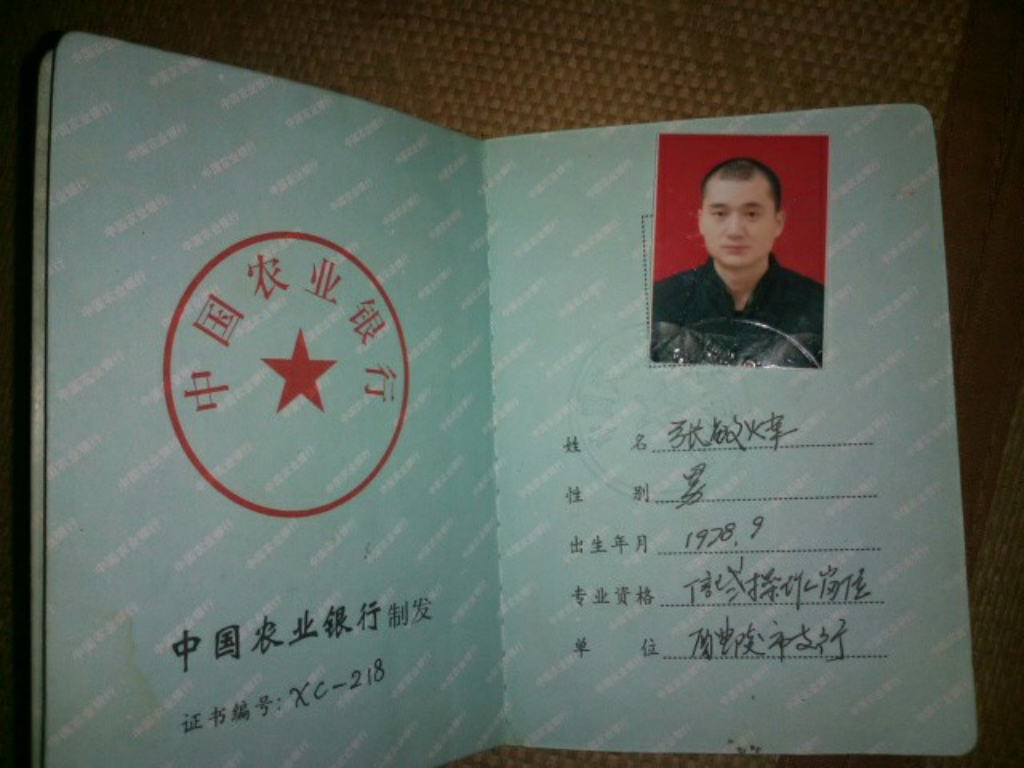 中国农业银行
中国农业银行制发
证书编号: XC-218
姓 名 张敏
性 别 男
出生年月 1978.9
专业资格 信贷操作岗位
单 位 市支行